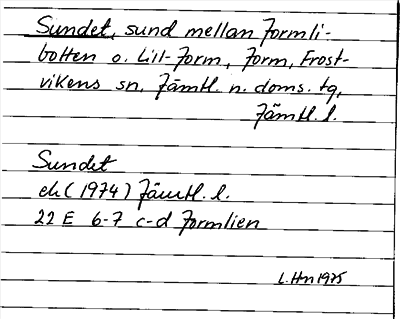 Sundet, sund mellan Formli-
botten o. Lill-Form, Form, Frost-
vikens sn, Jämtl. n. doms. tg,
Jämtl. l.
Sundet
ek (1974) Jämtl. l.
22 E 6-7 c-d Formlien
L. Hn 1975